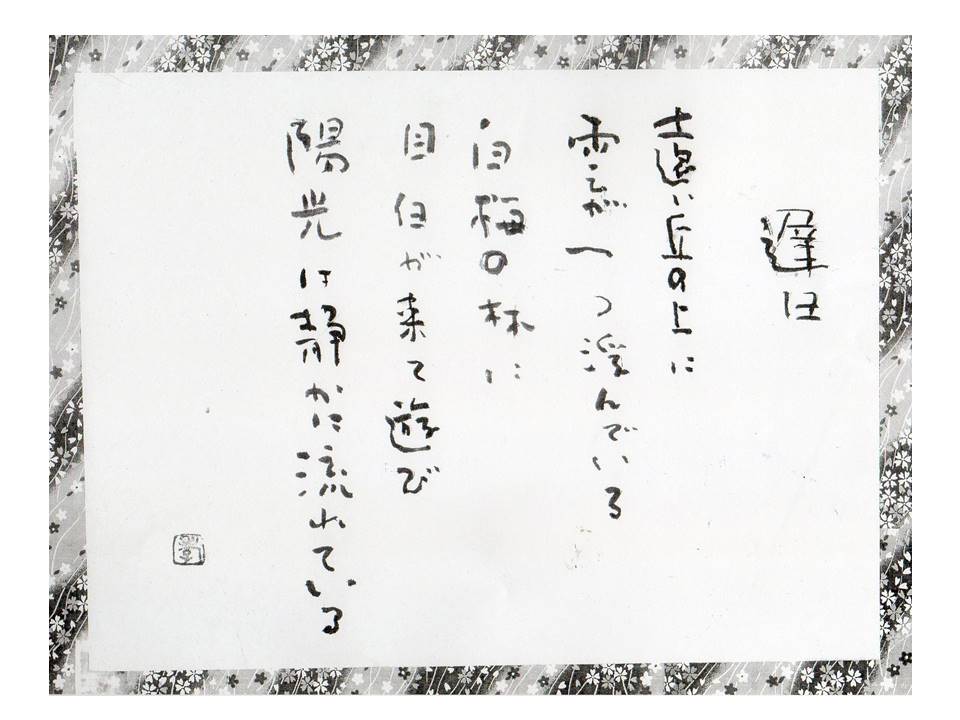 遅日
遠い丘の上に
雲が一つ浮んでいる
白梅の林に
目白が来て遊び
陽光は静かに流れている